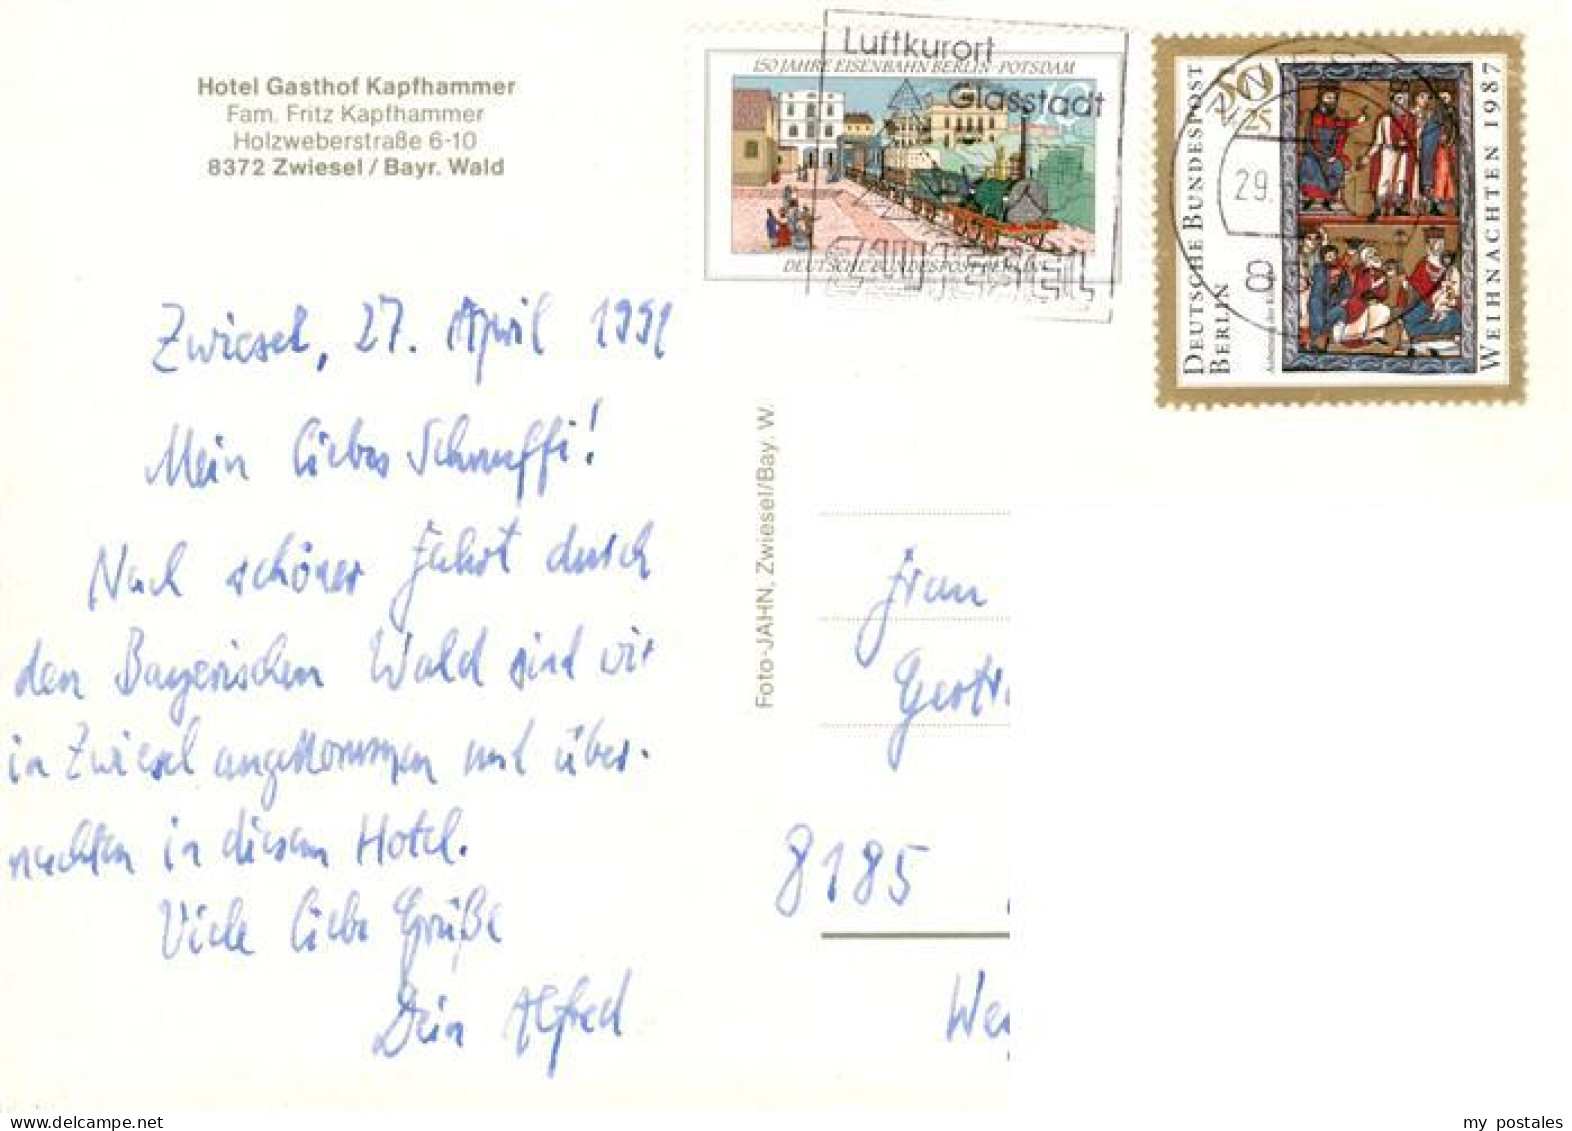 Hotel Gasthof Kapfhammer
Fam. Fritz Kapfhammer
Holzweberstraße 6-10
8372 Zwiesel / Bayr. Wald
Luftkurort
Glasstadt
ZWIESEL
150 JAHRE EISENBAHN BERLIN-POTSDAM
DEUTSCHE BUNDESPOST BERLIN
50
25
DEUTSCHE BUNDESPOST
BERLIN
WEIHNACHTEN 1987
29.
8
Zwiesel, 27. April 1991
Mein liebes Schnuffi!
Nach schöner Fahrt durch
den Bayerischen Wald sind wir
in Zwiesel angekommen und über-
nachten in diesem Hotel.
Viele liebe Grüße
Dein Alfred
Foto-JAHN, Zwiesel/Bay. W.
Frau
Gertr
8185
We
my postales